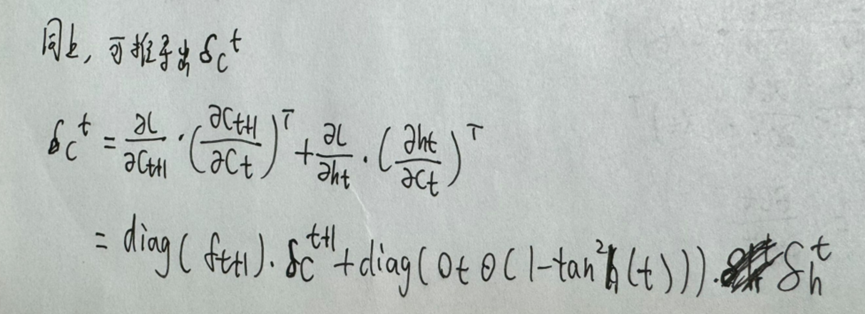 同上，可推导出 δc^t
δc^t = ∂L/∂Ct+1 · (∂Ct+1/∂Ct)^T + ∂L/∂ht · (∂ht/∂Ct)^T
= diag(ft+1) · δc^t+1 + diag(Ot ⊙ (1-tan²h(t))) · δh^t